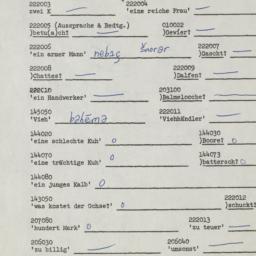 222003 222004
zwei X — 'eine reiche Frau' —
222005 (Aussprache & Bedtg.) 010022
)betu(a)ch! — )Gevier! —
222006 222007
'ein armer Mann' )Dascht! —
222008 222009
)Chattes! — )Dalfen! —
222010 203100
'ein Handwerker' — )Balmelooche! —
145050 222011
'Vieh' bǝhēmǝ 'Viehhändler' —
144020 144030
'eine schlechte Kuh' 0 )Boore! 0
144070 144073
'eine trächtige Kuh' 0 )battersch! 0
144080
'ein junges Kalb' 0
143050 222012
'was kostet der Ochse?' 0 )schuckt!
207080 222013
'hundert Mark' 0 'zu teuer' —
206030 206040
'zu billig' — 'umsonst' —